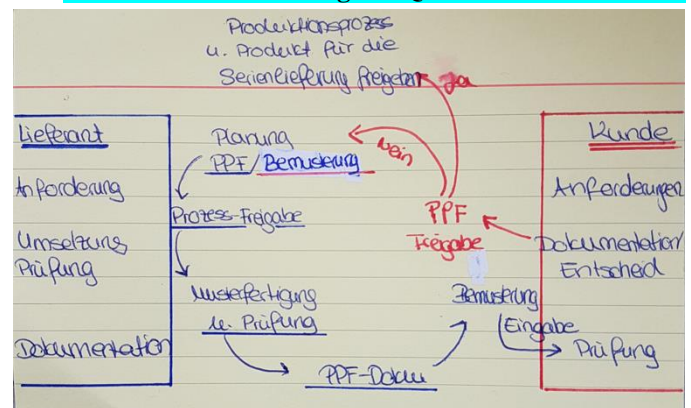 Produktionsprozess
u. Produkt für die
Serienlieferung freigeben
Ja
Lieferant
Anforderung
Umsetzung
Prüfung
Dokumentation
Planung
PPF/Bemusterung
Nein
Prozess-Freigabe
Musterfertigung
u. Prüfung
PPF-Doku
PPF
Freigabe
Bemusterung
Eingabe
Kunde
Anforderungen
Dokumentation/
Entscheid
Prüfung